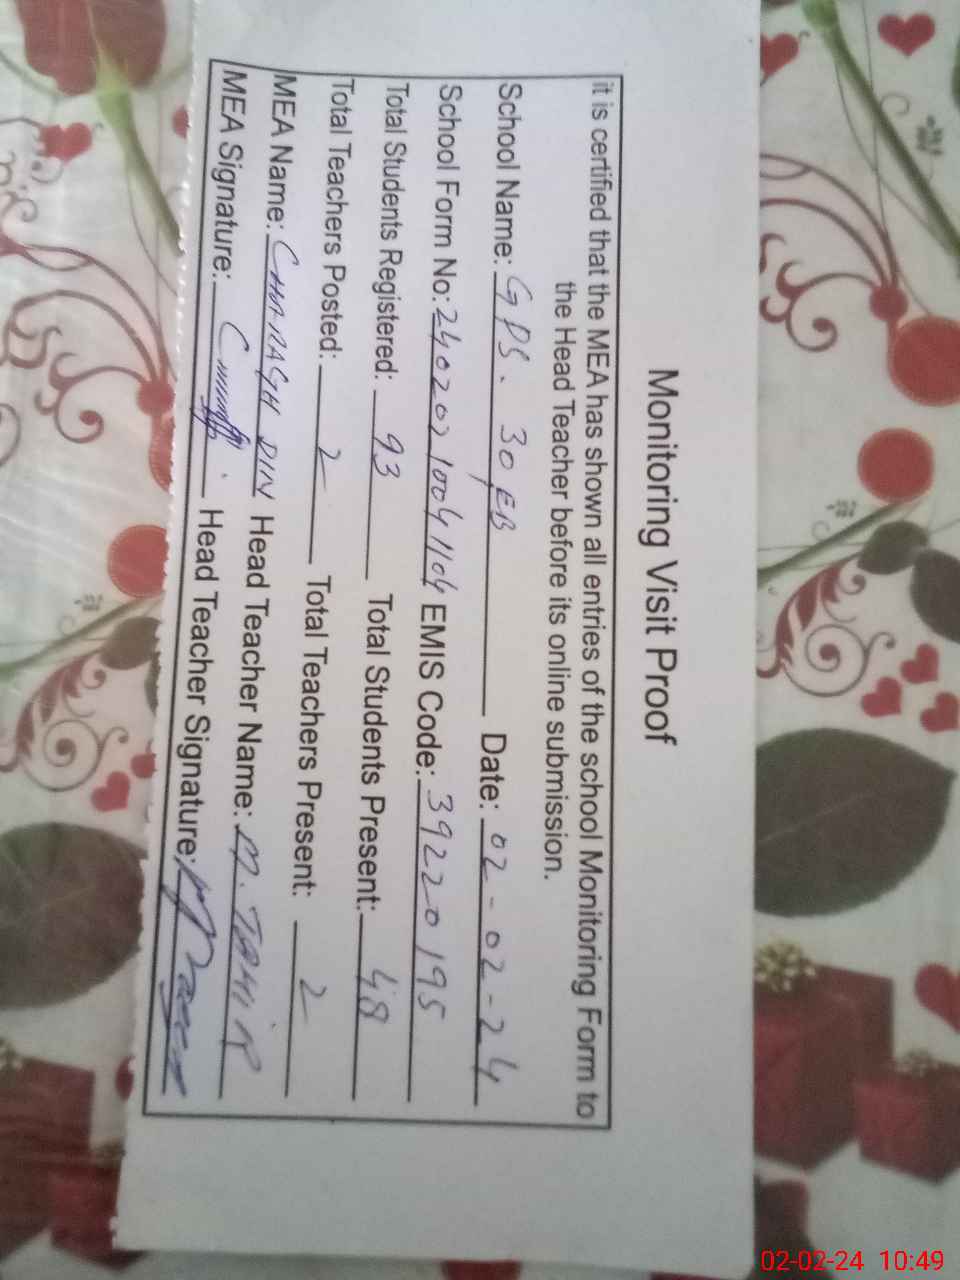 Monitoring Visit Proof
it is certified that the MEA has shown all entries of the school Monitoring Form to
the Head Teacher before its online submission.
School Name: GPS. 30 EB Date: 02-02-24
School Form No: 24020210041104 EMIS Code: 39220195
Total Students Registered: 93 Total Students Present: 48
Total Teachers Posted: 2 Total Teachers Present: 2
MEA Name: CHARAGH DIN Head Teacher Name: M. TAHIR
MEA Signature: Head Teacher Signature:
02-02-24 10:49